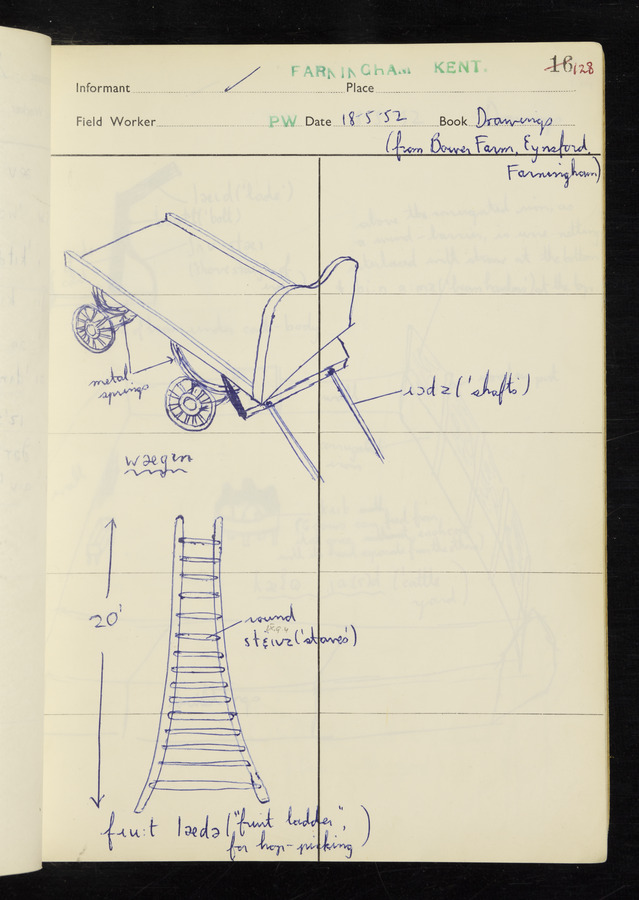 FARNINGHAM KENT. 16 128
Informant Place
Field Worker PW Date 18-5-52 Book Drawings
(from Bower Farm, Eynsford,
Farningham)
metal
springs
('shafts')
wægən
20'
round
steɪvz ('staves')
fruːt lædə ("fruit ladder",
for hop-picking)